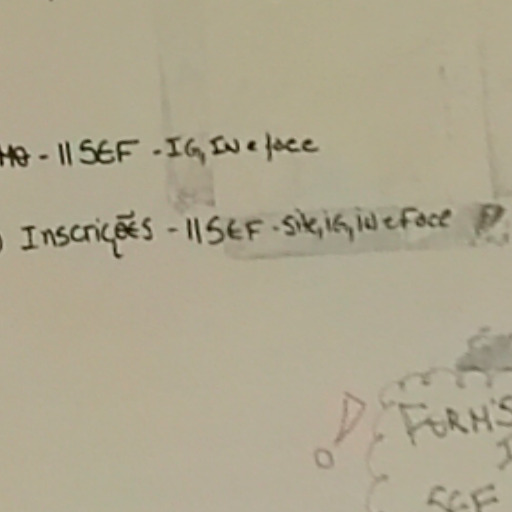 - IISEF - IG, IN e face
Inscrições - IISEF - site, IG, IN e Face
FORM'S
SEF